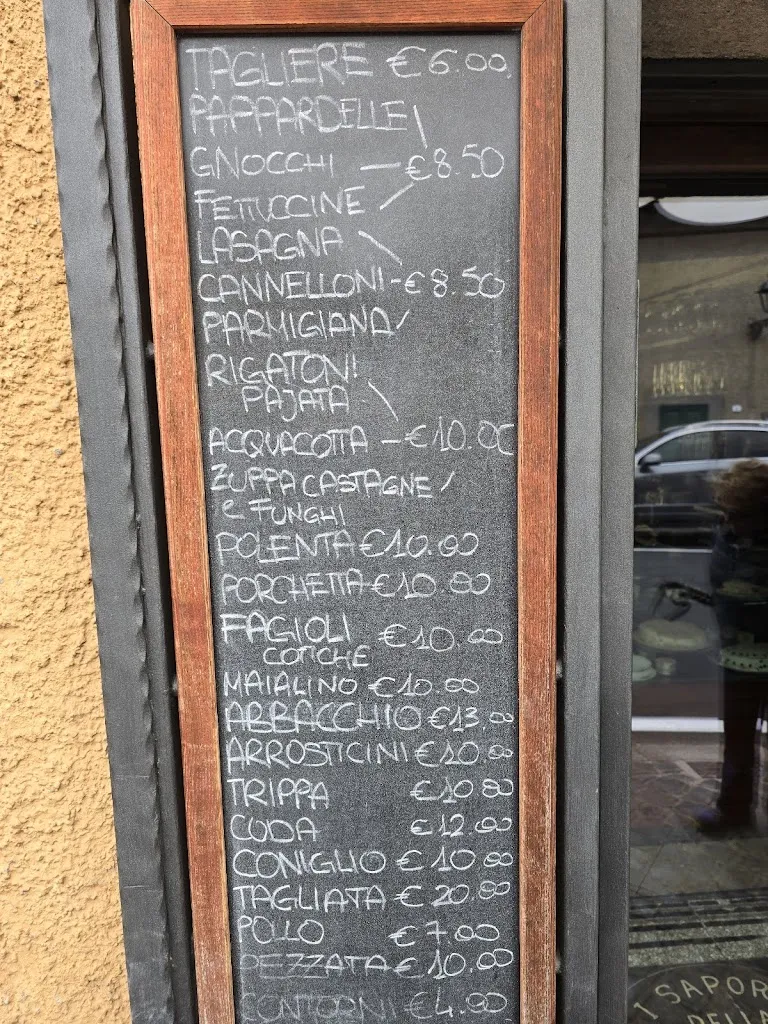 TAGLIERE €6.00
PAPPARDELLE
GNOCCHI — €8.50
FETTUCCINE
LASAGNA
CANNELLONI - €8.50
PARMIGIANA
RIGATONI
PAJATA
ACQUACOTTA - €10.00
ZUPPA CASTAGNE
e FUNGHI
POLENTA €10.00
PORCHETTA €10.00
FAGIOLI €10.00
COTICHE
MAIALINO €10.00
ABBACCHIO €13.00
ARROSTICINI €10.00
TRIPPA €10.00
CODA €12.00
CONIGLIO €10.00
TAGLIATA €20.00
POLLO €7.00
PEZZATA €10.00
CONTORNI €4.00
I SAPOR
DELLA